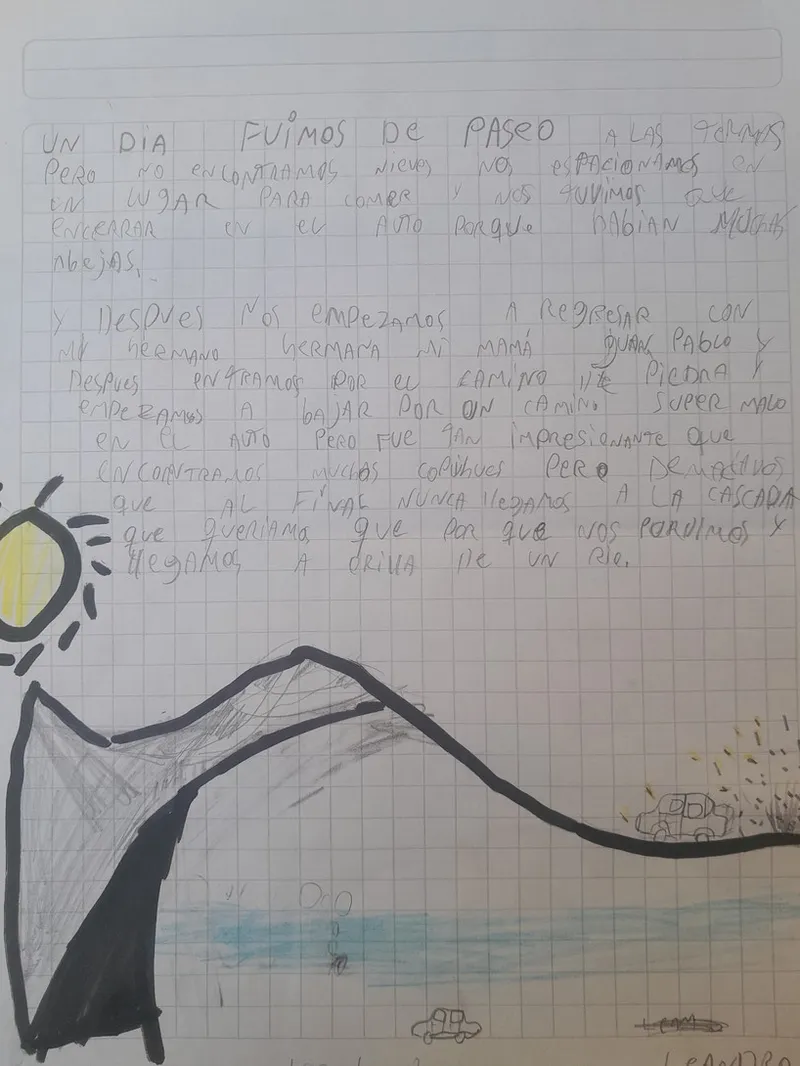 UN DIA FUIMOS DE PASEO A LAS TERMAS
PERO NO ENCONTRAMOS NIEVE NOS ESPACIONAMOS EN
UN LUGAR PARA COMER Y NOS TUVIMOS QUE
ENCERRAR EN EL AUTO PORQUE HABIAN MUCHAS
ABEJAS.
Y DESPUES NOS EMPEZAMOS A REGRESAR CON
MI HERMANO HERMANA MI MAMÁ JUAN PABLO Y
DESPUES ENTRAMOS POR EL CAMINO DE PIEDRA Y
EMPEZAMOS A BAJAR POR UN CAMINO SUPER MALO
EN EL AUTO PERO FUE TAN IMPRESIENANTE QUE
ENCONTRAMOS MUCHOS COPIHUES PERO
QUE AL FINAL NUNCA LLEGAMOS A LA CASCADA
QUE QUERIAMOS QUE POR QUE NOS PERDIMOS Y
LLEGAMOS A ORILLA DE UN RIO.
LEANDRO